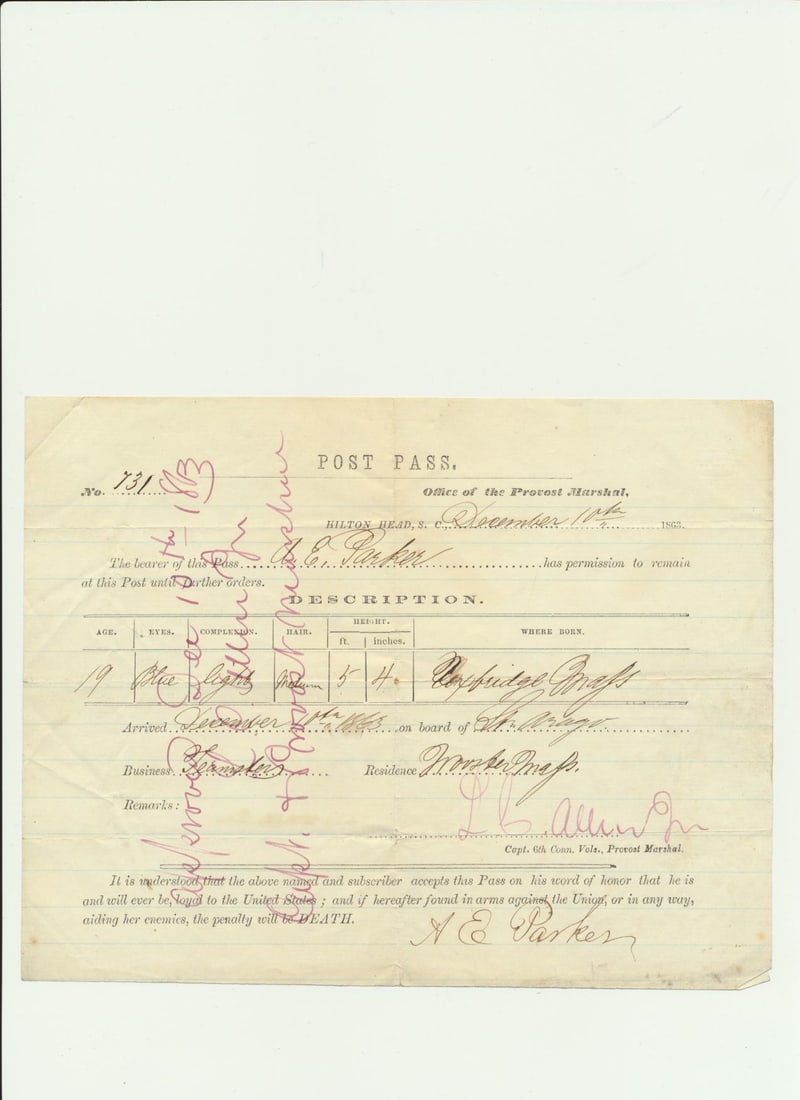 POST PASS.
No. 731
Office of the Provost Marshal,
HILTON HEAD, S. C., December 10th 1863.
The bearer of this Pass A. E. Parker has permission to remain
at this Post until further orders.
DESCRIPTION.
AGE. EYES. COMPLEXION. HAIR. HEIGHT. ft. inches. WHERE BORN.
19 Blue light Medium 5 4 Uxbridge Mass
Arrived December 10th 1863 on board of Str. Arago
Business Teamster Residence Wooster Mass.
Remarks:
Allen Jr
Capt. 6th Conn. Vols., Provost Marshal.
It is understood that the above named and subscriber accepts this Pass on his word of honor that he is
and will ever be, loyal to the United States; and if hereafter found in arms against the Union, or in any way,
aiding her enemies, the penalty will be DEATH.
A E Parker
Approved Dec 1863
Allen Jr
Capt. & Provost Marshal